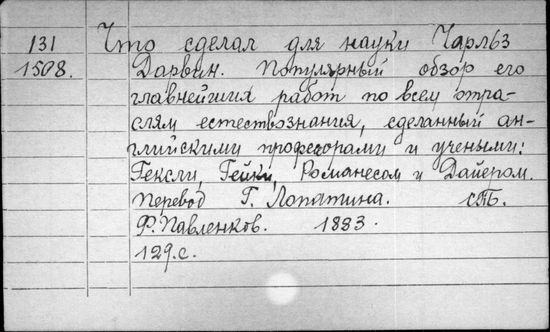 131 Что сделал для науки Чарльз
1508. Дарвин. Популярный обзор его
главнейших работ по всем отра-
слям естествознания, сделанный ан-
глийскими профессорами и учеными:
Гексли, Гейки, Романесом и Дайером.
Перевод Г. Лопатина. СПБ.
Ф. Павленков. 1883.
129.с.